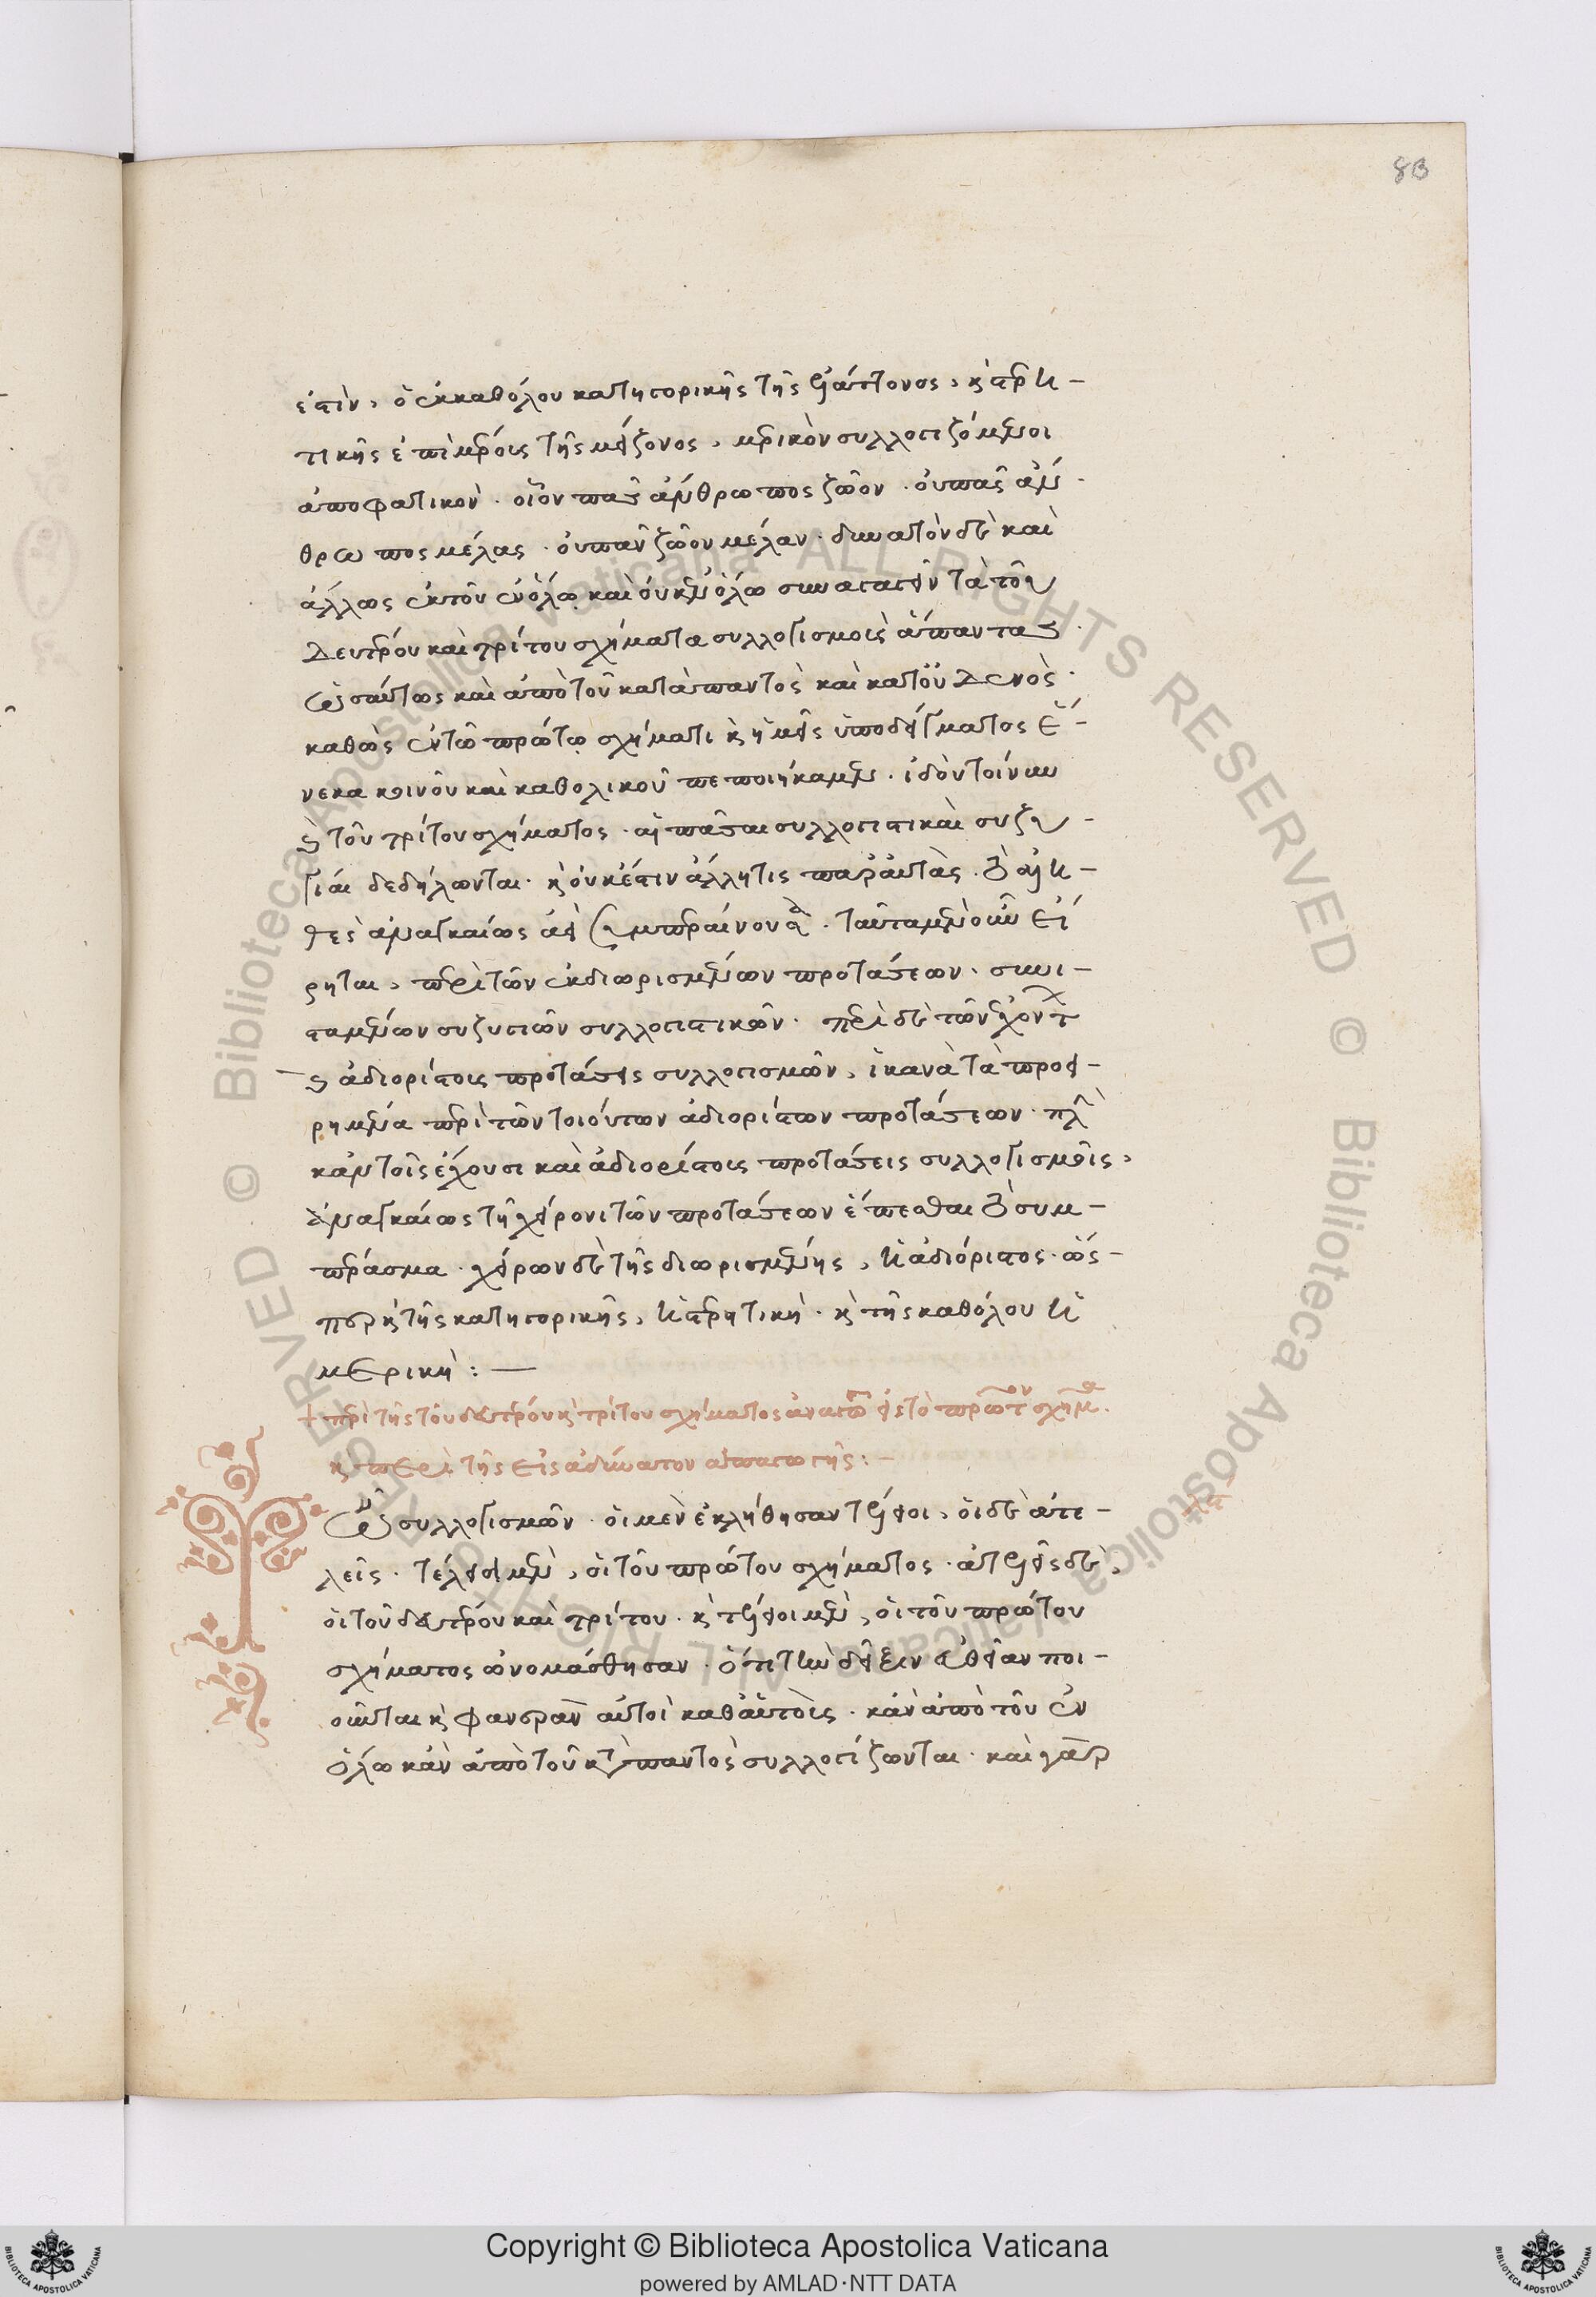 83
ἐστὶν, ὁ ἐκ καθόλου κατηγορικῆς τῆς ἐλάττονος, κ στερη-
τικῆς ἐπὶ μέρους τῆς μείζονος, μερικὸν συλλογιζόμενοι
ἀποφατικόν. οἷον πᾶς ἄνθρωπος ζῶον. οὐ πᾶς ἄν-
θρωπος μέλας. οὐ πᾶν ζῶον μέλαν. δυνατὸν δὲ καὶ
ἄλλως ἐκ τοῦ ἐν ὅλω καὶ οὐκ ἐν ὅλω συναγαγεῖν τὰ τοῦ
δευτέρου καὶ τρίτου σχήματα συλλογισμοὺς ἅπαντας.
ὡσαύτως καὶ ἀπὸ τοῦ κατὰ παντὸς καὶ κατ οὐδενὸς.
καθὼς ἐν τῶ πρώτω σχήματι κ ἡμεῖς ὑποδείγματος ἕ-
νεκα κοινοῦ καὶ καθολικοῦ πεποιήκαμεν. ἰδοὺ τοίνυν
κ τοῦ τρίτου σχήματος. αἱ πᾶσαι συλλογιστικαὶ συζυ-
γίαι δεδήλωνται. κ οὐκ ἔστιν ἄλλη τις παρ αὐτὰς.
τες ἀναγκαίως ἀεὶ συμπεραίνουσα. ταῦτα μὲν οὖν εἴ-
ρηται, περὶ τῶν ἐκ διωρισμένων προτάσεων. συνι-
σταμένων συζυγιῶν συλλογιστικῶν. περὶ δὲ τῶν ἐχόντων
κ ἀδιορίστους προτάσεις συλλογισμῶν, ἱκανὰ τὰ προει-
ρημένα περὶ τῶν τοιούτων ἀδιορίστων προτάσεων. πλὴν
κἀν τοῖς ἔχουσι καὶ ἀδιορίστους προτάσεις συλλογισμοῖς,
ἀναγκαίως τῇ χείρονι τῶν προτάσεων ἕπεσθαι τὸ συμ-
πέρασμα. χείρων δὲ τῆς διωρισμένης, ἡ ἀδιόριστος. ὥς-
περ κ τῆς κατηγορικῆς, ἡ στερητική. κ τῆς καθόλου ἡ
μερική: —
+ περὶ τῆς τοῦ δευτέρου κ τρίτου σχήματος ἀναγωγῆς εἰς τὸ πρῶτον σχῆμα.
κ περὶ τῆς εἰς ἀδύνατον ἀπαγωγῆς: —
Τῶν συλλογισμῶν. οἱ μὲν ἐκλήθησαν τέλειοι, οἱ δὲ ἀτε-
λεῖς. τέλειοι μὲν, οἱ τοῦ πρώτου σχήματος. ἀτελεῖς δὲ,
οἱ τοῦ δευτέρου καὶ τρίτου. κ τέλειοι μὲν, οἱ τοῦ πρώτου
σχήματος ὠνομάσθησαν. ὅτι τὴν δεῖξιν εὐθεῖαν ποι-
οῦνται κ φανερὰν αὐτοὶ καθ αὑτοὺς. κἂν ἀπὸ τοῦ ἐν
ὅλω κἂν ἀπὸ τοῦ κατὰ παντὸς συλλογίζωνται. καὶ γὰρ
Copyright © Biblioteca Apostolica Vaticana
powered by AMLAD·NTT DATA